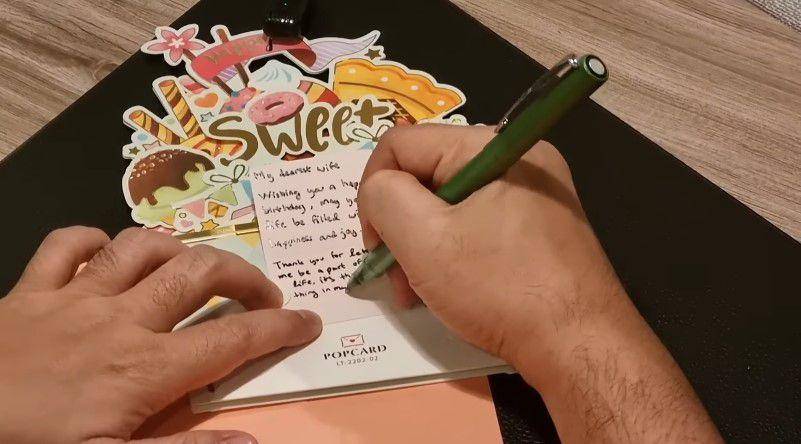 Happy
Sweet
My dearest wife
Wishing you a
birthday, may
life be filled
happiness and joy
Thank you for
me be a part of
life, its
thing in
POPCARD
LT-2202-02